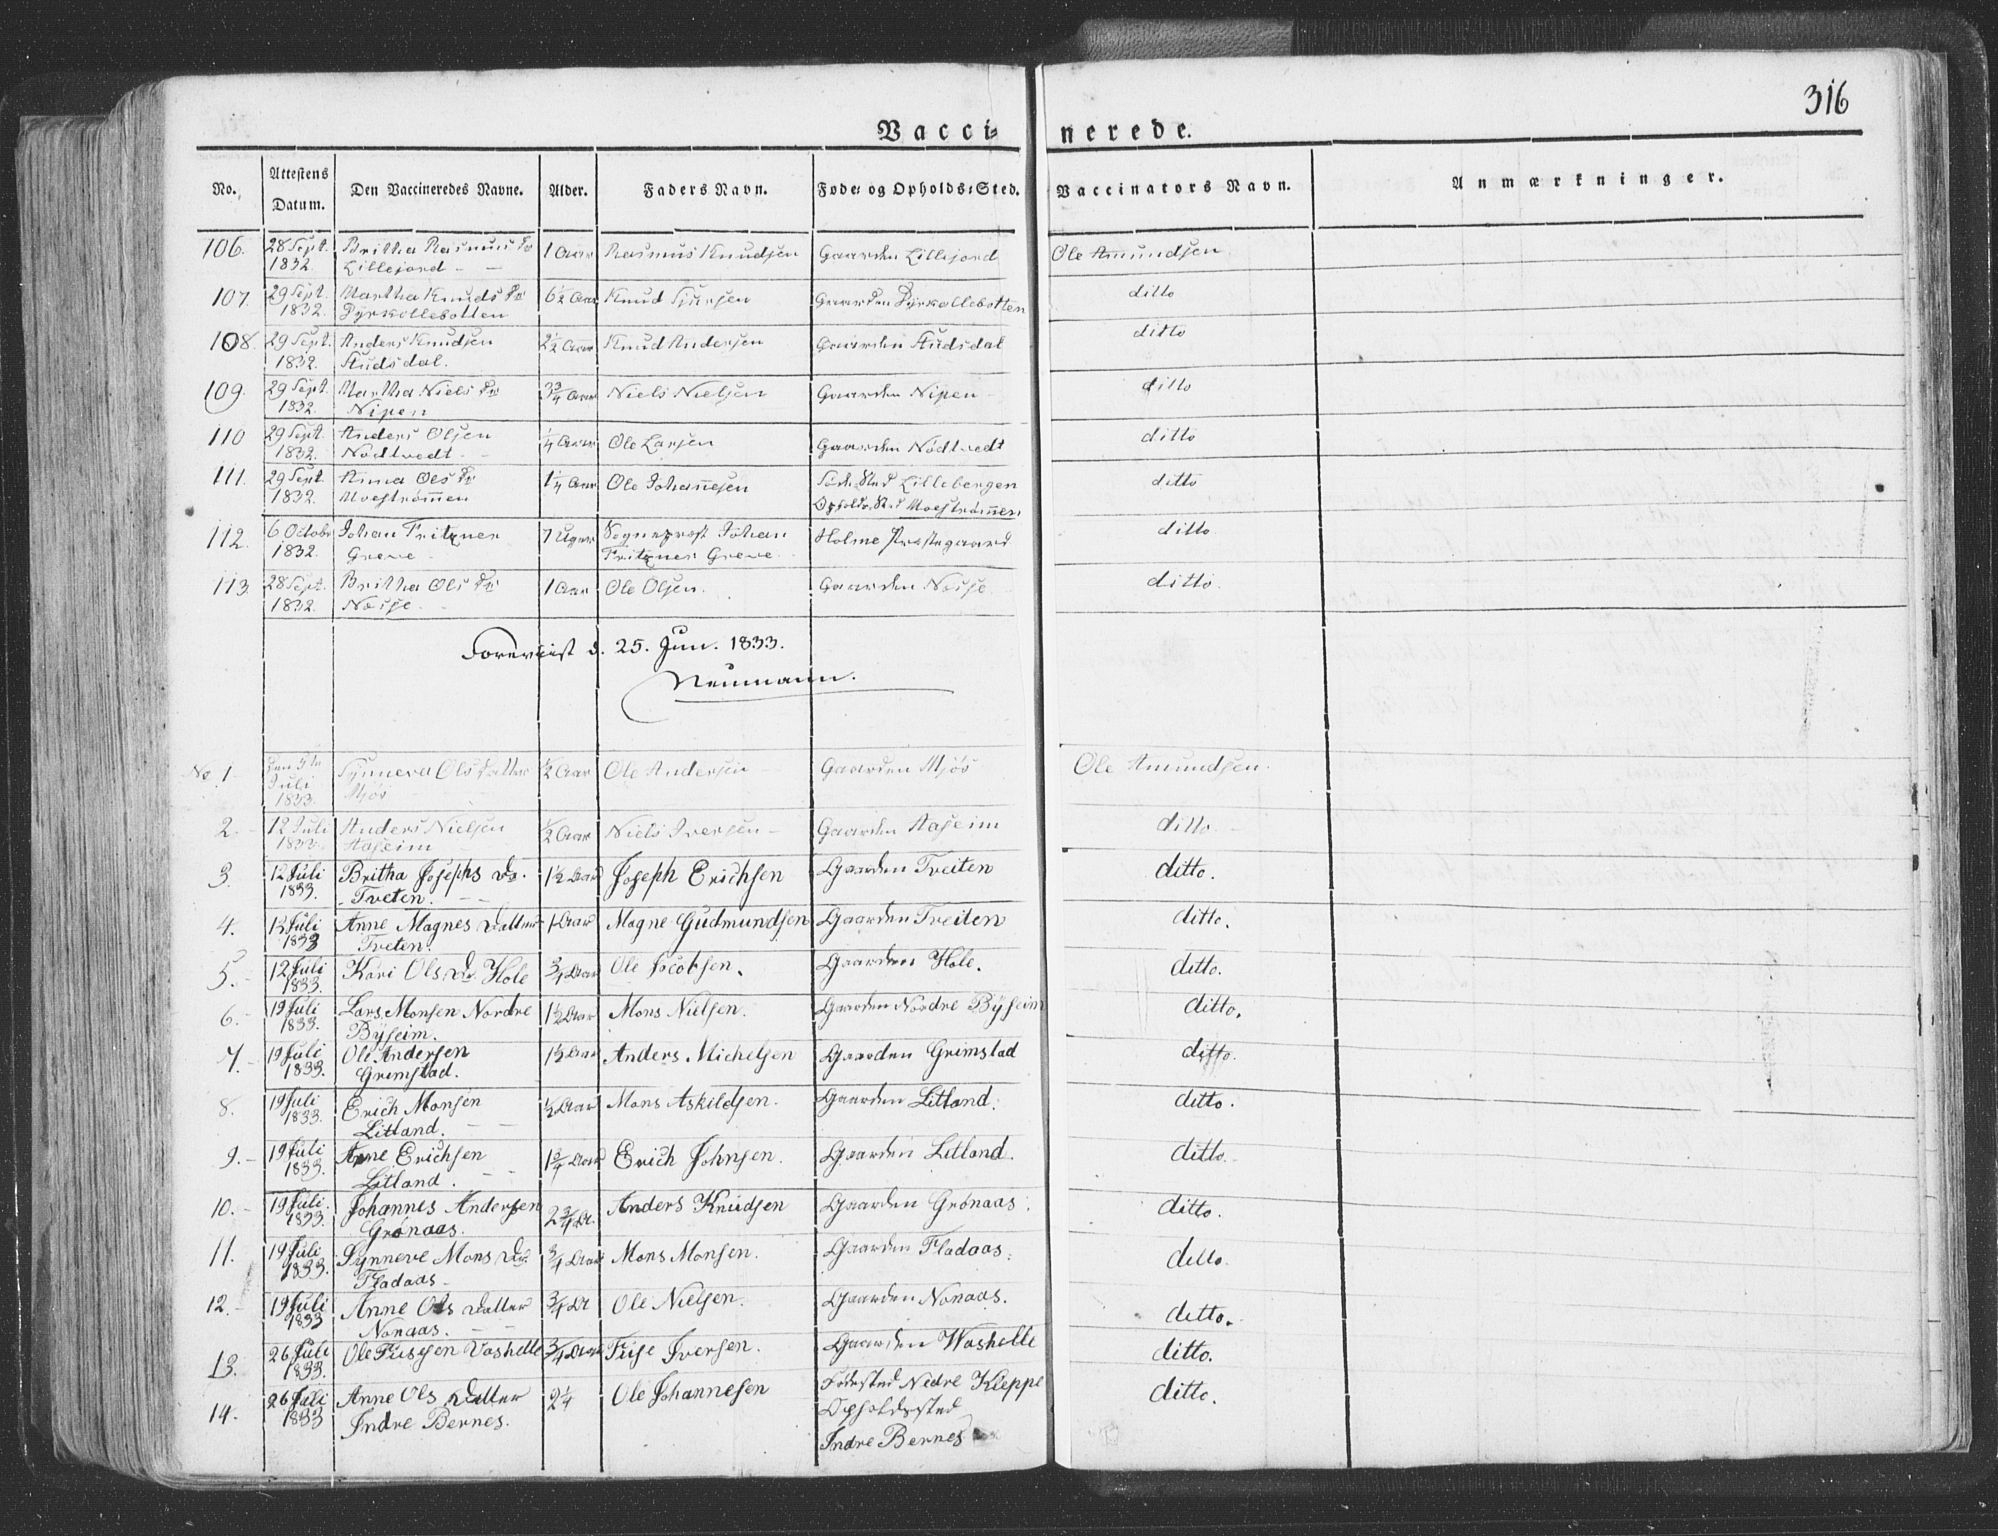 316
Vacci- nerede.
No. Attestens Datum. Den Vaccineredes Navne. Alder. Faders Navn. Føde- og Opholds-Sted. Vaccinators Navn. Anmærkninger.
106. 28 Sept. Britha Rasmus Dr 1 Aar Rasmus Knudsen Gaarden Lillejord Ole Amundsen
1832. Lillejord
107. 29 Sept. Martha Knuds Dr 6½ Aar Knud Sjursen Gaarden Dyrkollebotten ditto
1832. Dyrkollebotten
108. 29 Sept. Anders Knudsen 2½ Aar Knud Andersen Gaarden Audsdal ditto
1832. Audsdal.
109. 29 Sept. Martha Niels Dr 3¾ Aar Niels Nielsen Gaarden Nipen ditto
1832. Nipen
110 29 Sept. Anders Olsen ¼ Aar Ole Larsen Gaarden Nødtvedt ditto
1832. Nødtvedt
111. 29 Sept. Anna Ols Dr 1¼ Aar Ole Johannesen Føde Sted Lillebergen ditto
1832. Moestrømmen Opholds Sted Moestrømmen
112. 6 Octobr Johan Fritzner 7 Uger Sogneprest Johan Holme Præstegaard ditto
1832. Greve Fritzner Greve
113. 28 Sept. Britha Ols Dr 1 Aar Ole Olsen. Gaarden Nesse ditto.
1832. Nesse.
Foreviist d. 25. Jun. 1833.
Neumann.
No. 1 Den 5te Synneva Ols Datter ½ Aar Ole Andersen Gaarden Mjøs Ole Amundsen.
Juli Mjøs
1833.
2. 12 Juli Anders Nielsen ½ Aar Niels Iversen Gaarden Aaseim ditto.
1833. Aaseim
3. 12 Juli Britha Josephs Dr. 1½ Aar Joseph Erichsen Gaarden Tveiten ditto.
1833. Tveten.
4. 12 Juli Anne Magnes Datter 1 Aar Magne Gudmundsen Gaarden Tveiten ditto.
1833 Tveten.
5. 12 Juli Kari Ols Dr Hole ¾ Aar Ole Jacobsen. Gaarden Hole. ditto.
1833.
6. 19 Juli Lars Monsen Nordre 1½ Aar Mons Nielsen. Gaarden Nordre Byseim ditto.
1833. Byseim.
7. 19 Juli Ole Andersen 1½ Aar Anders Michelsen Gaarden Grimstad ditto.
1833. Grimstad.
8. 19 Juli Erich Monsen ½ Aar Mons Askildsen. Gaarden Litland. ditto.
1833. Litland.
9. 19 Juli Anne Erichsen 1¾ Aar Erich Johnsen. Gaarden Litland. ditto.
1833. Litland.
10. 19 Juli Johannes Andersen 2¾ A. Anders Knudsen Gaarden Grönaas. ditto.
1833. Grönaas.
11. 19 Juli Synneve Mons Dr. ¾ Aar Mons Monsen. Gaarden Fladaas. ditto.
1833. Fladaas
12. 19 Juli Anne Ols Datter ¾ A Ole Nielsen. Gaarden Nonaas. ditto.
1833 Nonaas.
13. 26 Juli Ole Fusesen Vashelle ¾ Aar Fuse Iversen. Gaarden Washelle ditto.
1833.
14. 26 Juli Anne Ols Datter 2¼ Ole Johannesen Fødested Nedre Kleppe ditto.
1833 Indre Bernes. Opholdssted
Indre Bernes